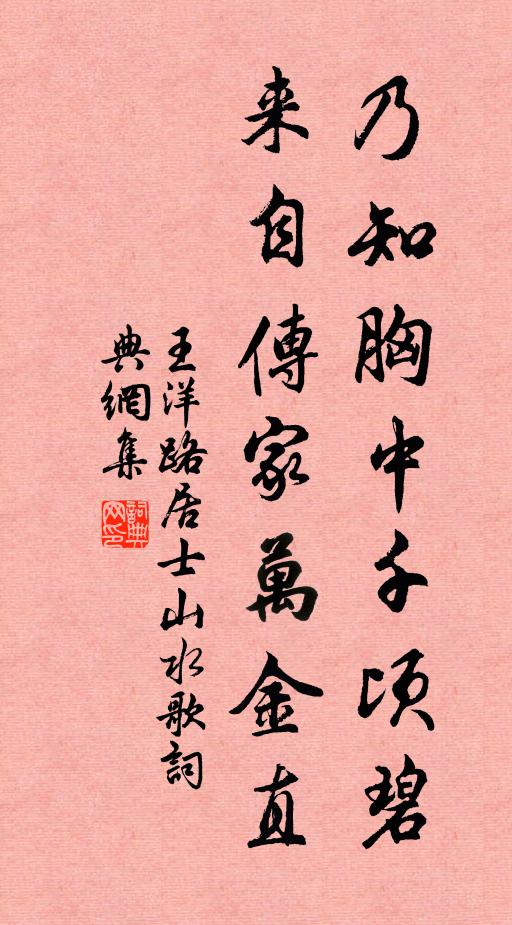 乃知胸中千頃碧
来自傳家萬金直
王洋路居士山水歌詞
典網集
詞典
网印